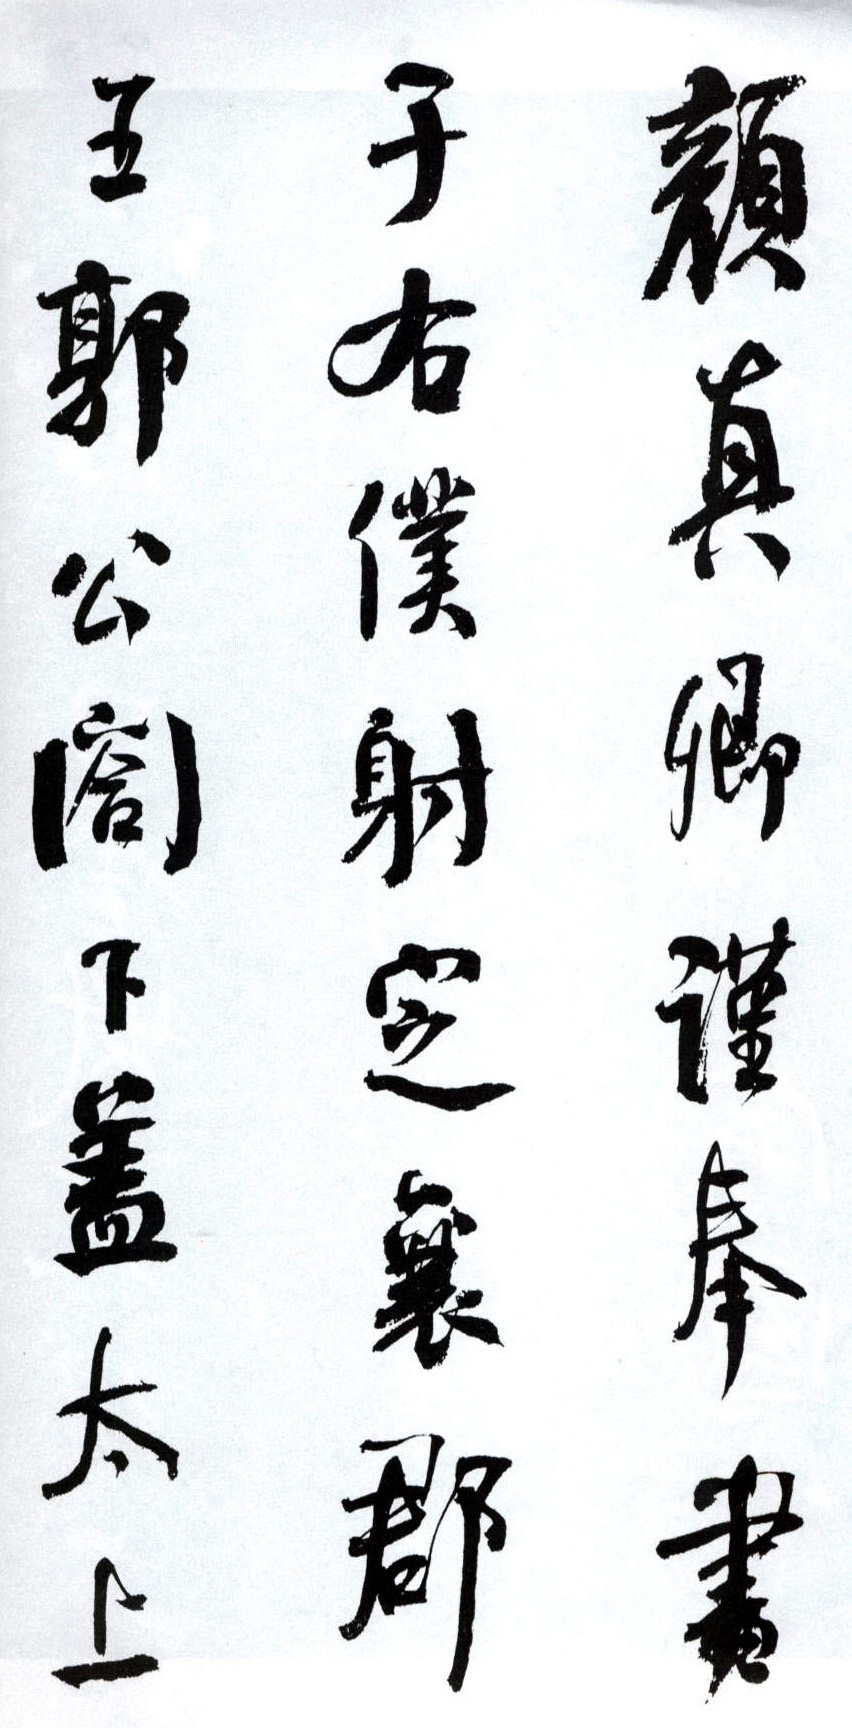 顏真卿謹奉書
于右僕射定襄郡
王郭公閣下蓋太上